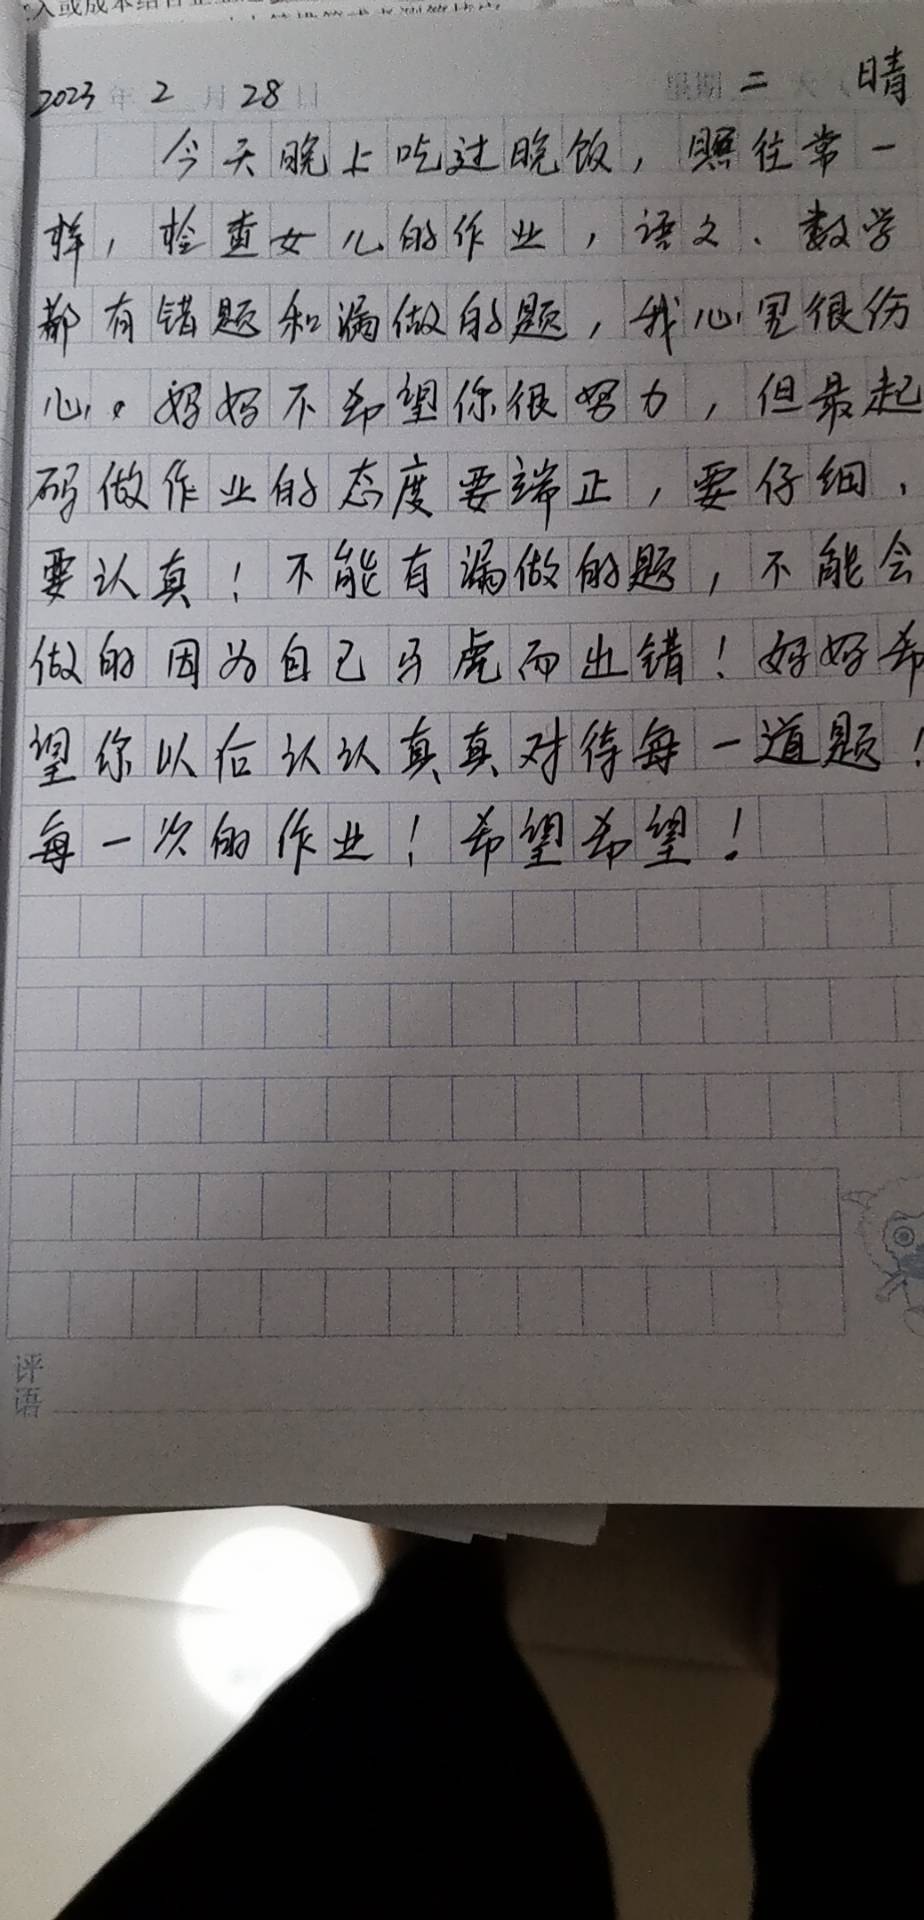 2023年2月28日 星期二 天气 晴
今天晚上吃过晚饭，照往常一
样，检查女儿的作业，语文、数学
都有错题和漏做的题，我心里很伤
心。妈妈不希望你很努力，但最起
码做作业的态度要端正，要仔细、
要认真！不能有漏做的题，不能会
做的因为自己马虎而出错！妈妈希
望你以后认认真真对待每一道题！
每一次的作业！希望希望！
评语